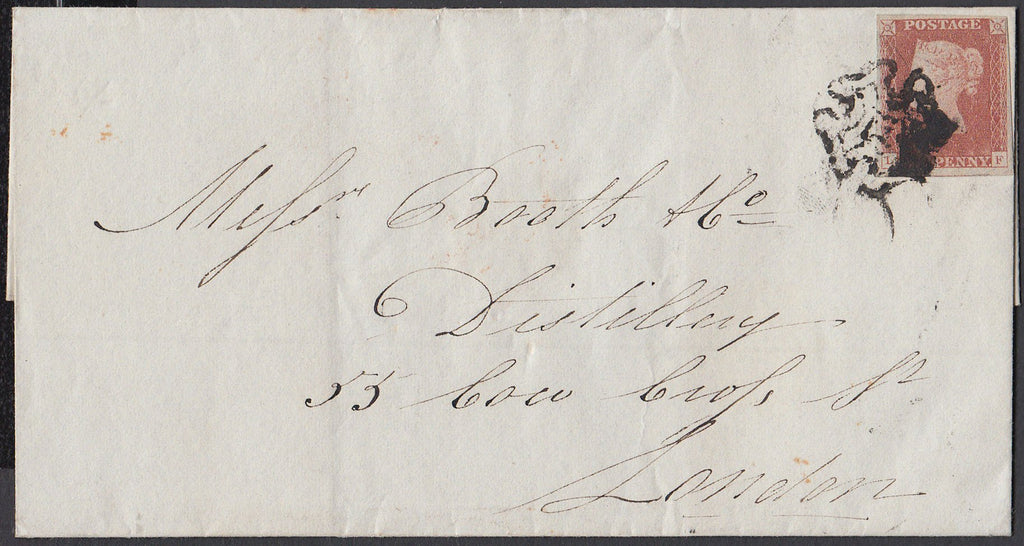 POSTAGE
PENNY
F
Messrs Booth & Co
Distillery
55 Cow Cross St
London